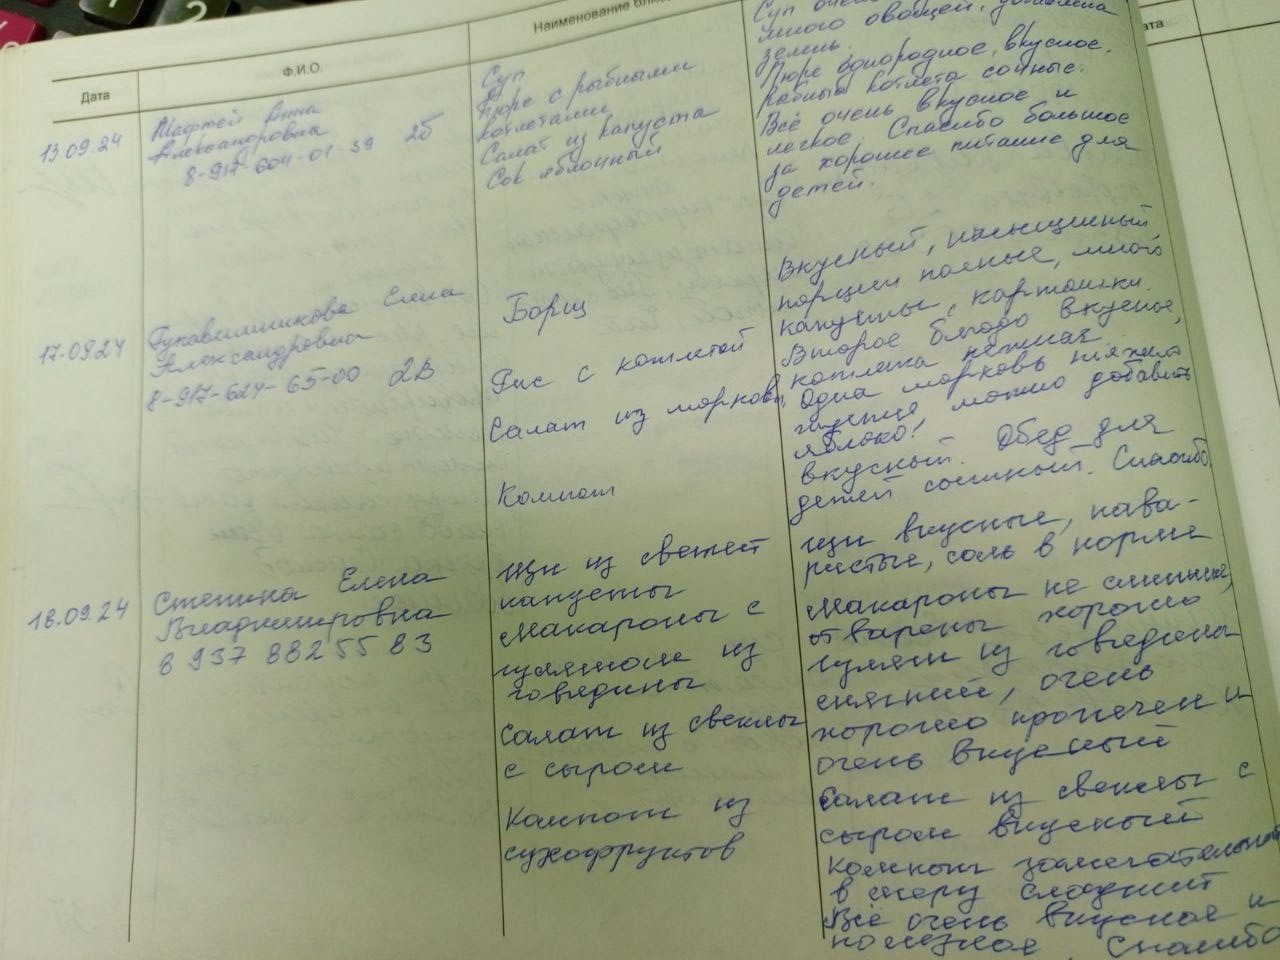 Дата
Ф.И.О.
Наименование блюд
ата
13.09.24
Мафтей Анна
Александровна
8-917-604-01-39 2б
Суп
Пюре с рыбными
котлетами
Салат из капуста
Сок яблочный
Суп очень
много овощей, добавлена
зелень.
Пюре однородное, вкусное.
рыбные котлета сочные.
Всё очень вкусное и
легкое. Спасибо большое
за хорошее питание для
детей.
17.09.24
Рукавишникова Елена
Александровна
8-917-624-65-00 2В
Борщ
Рис с котлетой
Салат из моркови,
Компот
Вкусный, насыщенный
порции полные, много
капусты, картошки.
Второе блюдо вкусное,
котлета нежная.
Одна морковь тяжело
можно добавить
яблоко!
вкусный. Обед для
детей сытный. Спасибо
18.09.24
Степина Елена
Владимировна
8 937 882 55 83
Щи из свежей
капусты
Макароны с
гуляшом из
говядины
Салат из свеклы
с сыром
Компот из
сухофруктов
Щи вкусные, нава-
ристые, соль в норме
Макароны не слипшие,
отварены хорошо,
гуляш из говядины
мягкий, очень
хорошо пропечен и
очень вкусный
Салат из свеклы с
сыром вкусный
Компот замечательный
в меру сладкий
Всё очень вкусное и
полезное. Спасибо